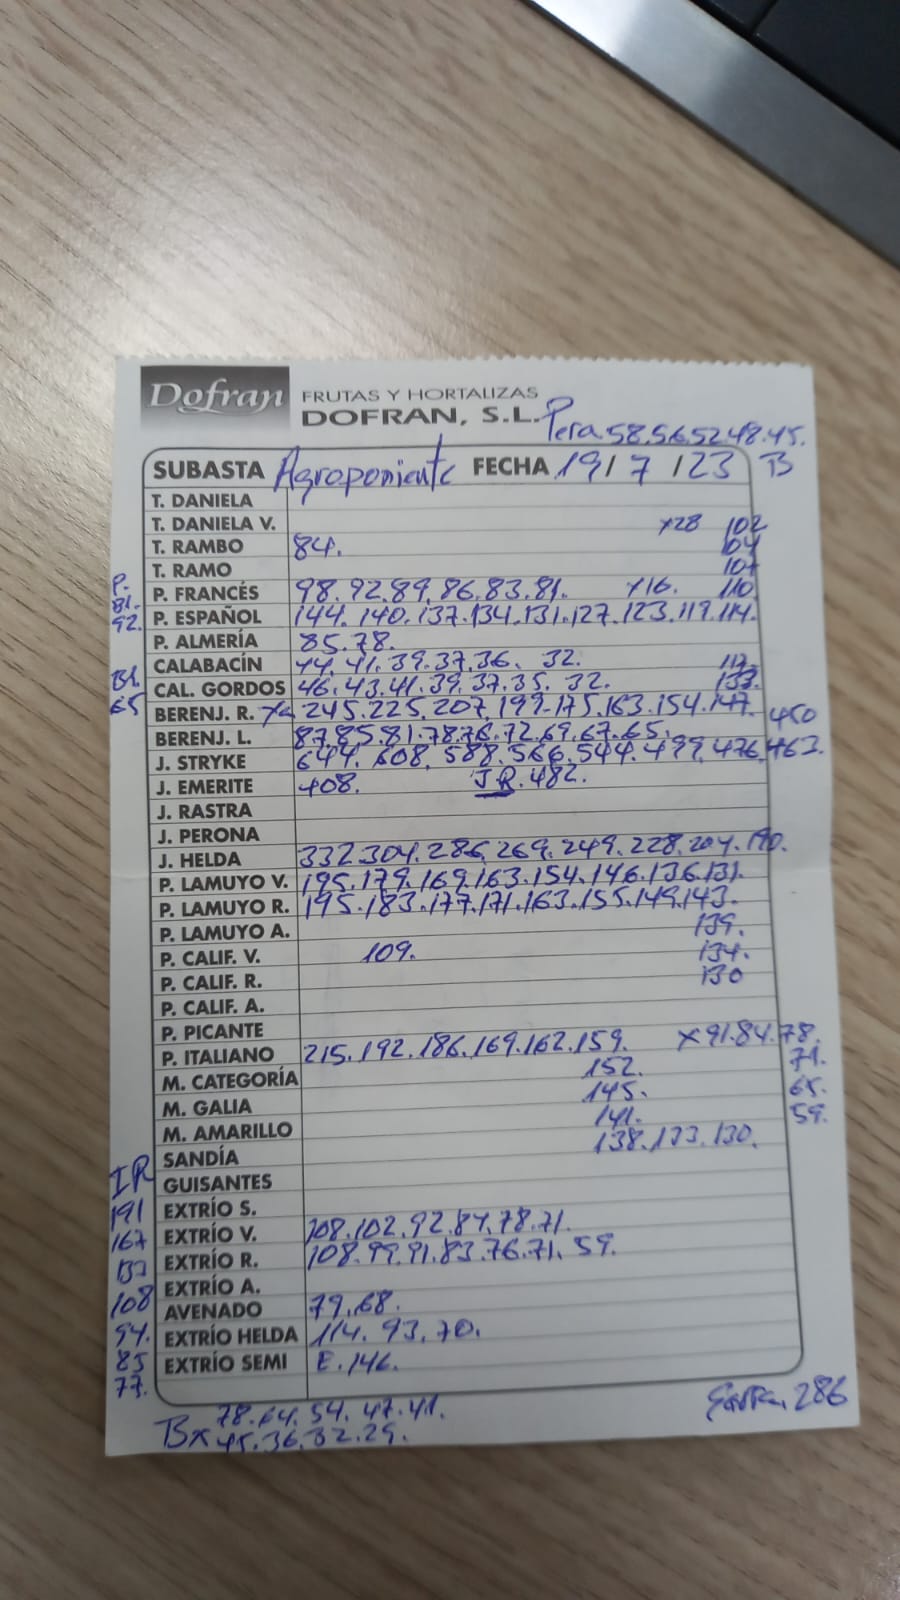 Dofran FRUTAS Y HORTALIZAS
DOFRAN, S.L. Pera.58.56.52.48.45.
SUBASTA Agroponiente FECHA 19/7/23 B
T. DANIELA
T. DANIELA V. x28 102
T. RAMBO 84. 104
T. RAMO 107
P. P. FRANCÉS 98.92.89.86.83.81. x16. 110
81. 92. P. ESPAÑOL 144.140.137.134.131.127.123.119.114.
P. ALMERÍA 85.78.
CALABACÍN 44.41.39.37.36. 32. 117.
Bl. CAL. GORDOS 46.43.41.39.37.35. 32. 133.
65 BERENJ. R. 245.225.207.199.175.163.154.147. 450
BERENJ. L. 87.85.81.78.76.72.69.67.65.
J. STRYKE 644.608.588.566.544.499.476.463.
J. EMERITE 408. J R.482.
J. RASTRA
J. PERONA
J. HELDA 332.304.286.269.249.228.204.190.
P. LAMUYO V. 195.179.169.163.154.146.136.131.
P. LAMUYO R. 195.183.177.171.163.155.149.143.
P. LAMUYO A. 139.
P. CALIF. V. 109. 134.
P. CALIF. R. 130
P. CALIF. A.
P. PICANTE
P. ITALIANO 215.192.186.169.162.159. x91.84.78.
M. CATEGORÍA 152. 71.
M. GALIA 145. 65.
M. AMARILLO 141. 59.
SANDÍA 138.133.130.
IR GUISANTES
191 EXTRÍO S.
167 EXTRÍO V. 108.102.92.84.78.71.
137 EXTRÍO R. 108.99.91.83.76.71.59.
108 EXTRÍO A.
AVENADO 79.68.
94. EXTRÍO HELDA 114.93.70.
85 EXTRÍO SEMI E.146.
77.
78.64.54.47.41. 286
Bx 45.36.32.29.